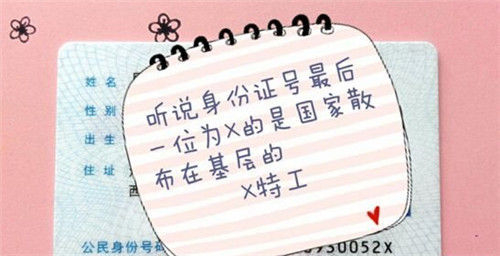 姓名
性别
出生
住址
听说身份证号最后
一位为X的是国家散
布在基层的
X特工
公民身份号码
930052X